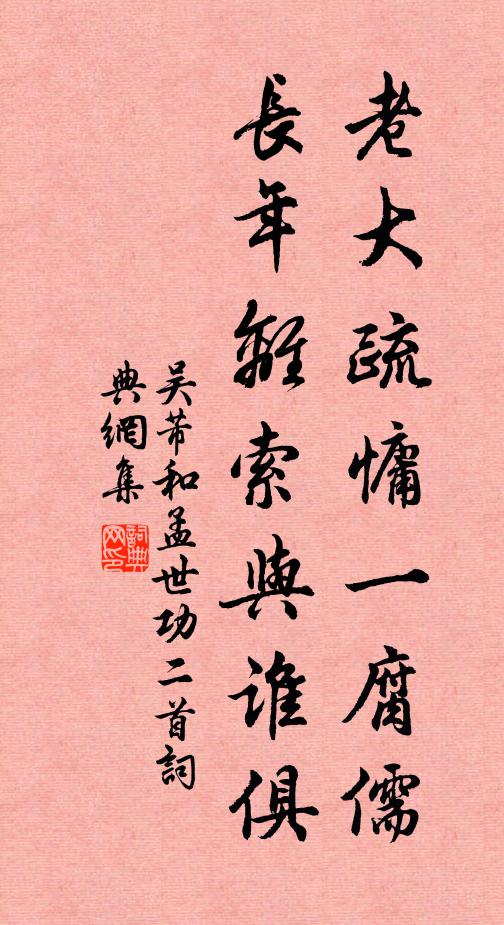 老大疏慵一腐儒
長年離索與誰俱
吴芾和孟世功二首詞
典網集
詞典網印